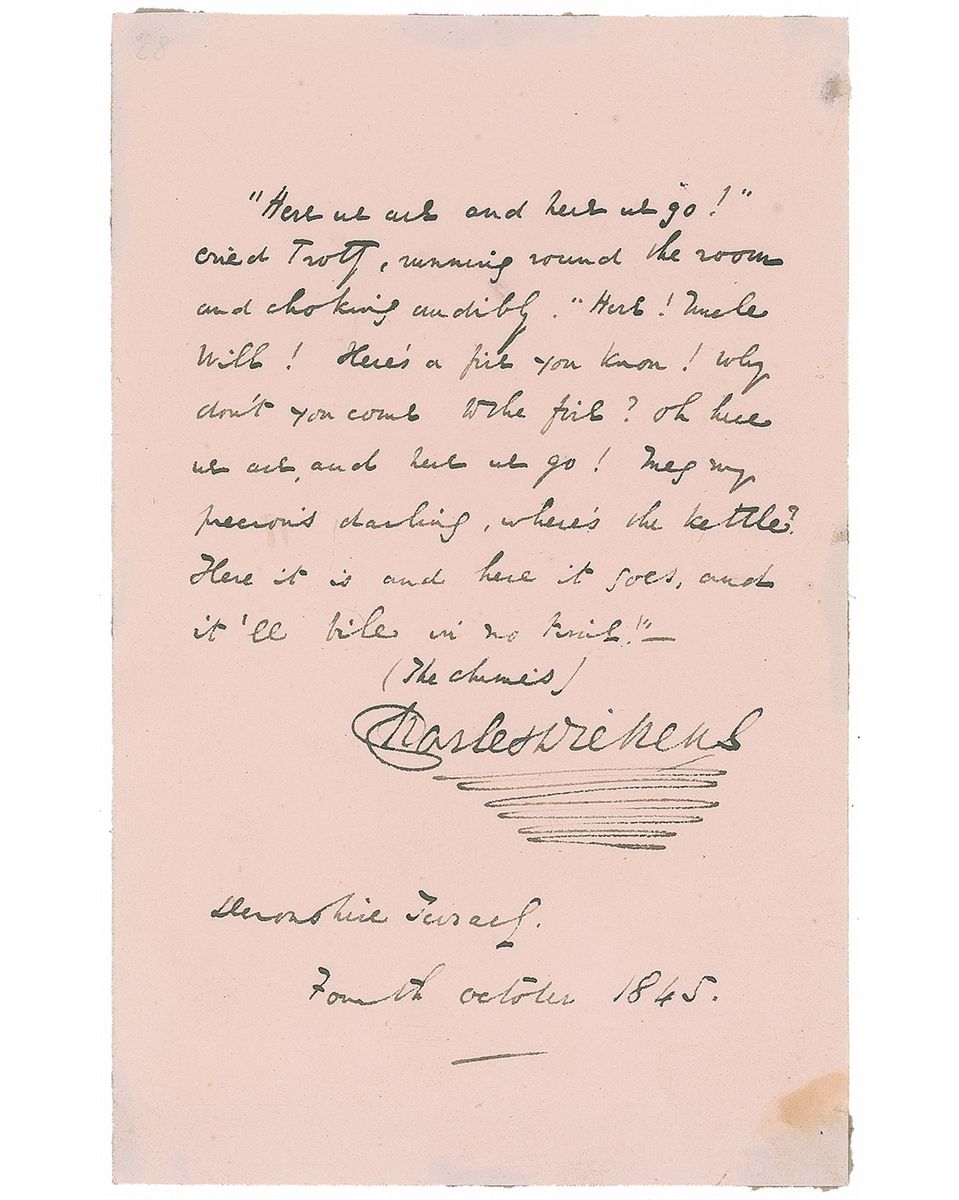 28
"Here we are and here we go!"
cried Trotty, running round the room
and choking audibly. "Here! Uncle
Will! Here's a fire you know! Why
don't you come to the fire? Oh here
we are, and here we go! Meg my
precious darling, where's the kettle?
Here it is and here it goes, and
it'll bile in no time!"—
(The chimes)
Charles Dickens
Devonshire Terrace.
Fourth October 1845.